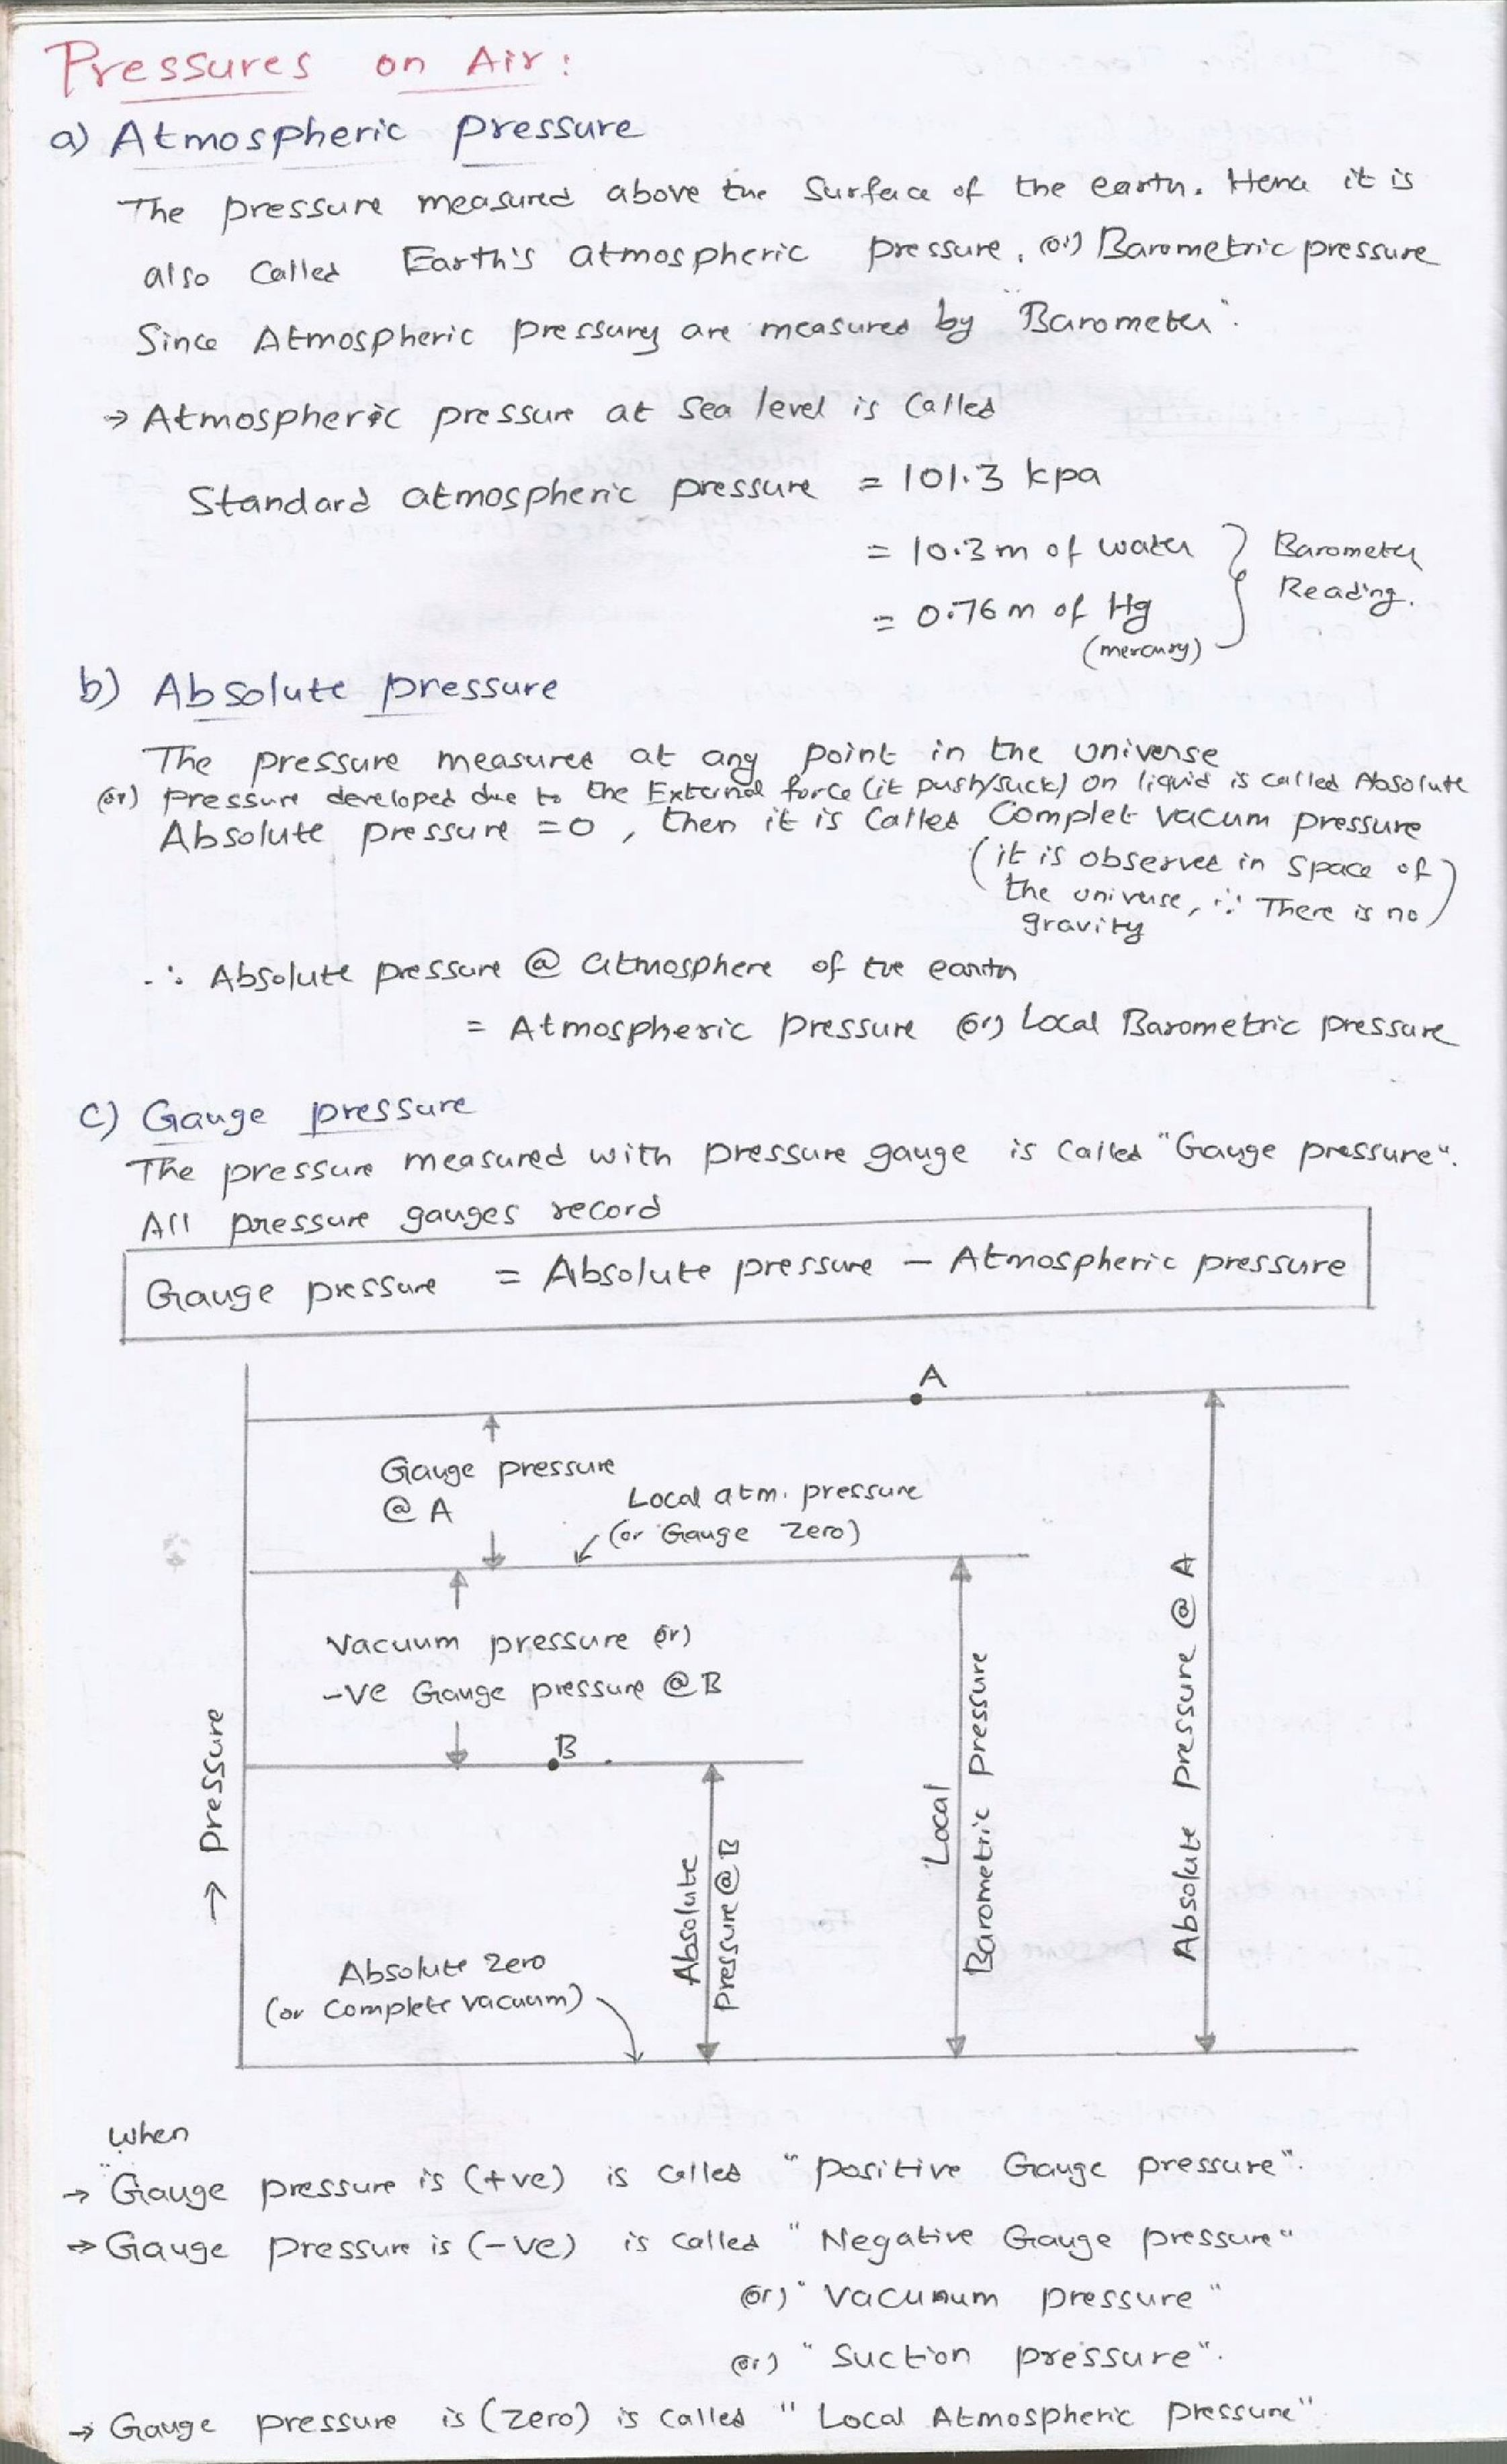 Pressures on Air:
a) Atmospheric pressure
The pressure measured above the Surface of the earth. Hence it is
also Called Earth's atmospheric pressure. (or) Barometric pressure
Since Atmospheric pressures are measured by "Barometer".
→ Atmospheric pressure at sea level is Called
Standard atmospheric pressure = 101.3 kpa
= 10.3 m of water
= 0.76 m of Hg
(mercury)
Barometer
Reading.
b) Absolute pressure
The pressure measured at any point in the universe
(or) pressure developed due to the External force (it push/suck) on liquid is called Absolute
Absolute pressure = 0, then it is Called Complet vacum pressure
(it is observed in space of
the universe, ∵ There is no)
gravity
∴ Absolute pressure @ atmosphere of the earth
= Atmospheric pressure (or) Local Barometric pressure
c) Gauge pressure
The pressure measured with pressure gauge is Called "Gauge pressure".
All pressure gauges record
Gauge pressure = Absolute pressure - Atmospheric pressure
A
Gauge pressure
@ A
Local atm. pressure
(or Gauge Zero)
Vacuum pressure (or)
-ve Gauge pressure @ B
B
→ Pressure
Absolute
pressure @ B
Local
Barometric pressure
Absolute pressure @ A
Absolute Zero
(or Complete vacuum)
when
→ Gauge pressure is (+ve) is called "positive Gauge pressure".
→ Gauge pressure is (-ve) is called "Negative Gauge pressure"
(or) "Vacumum pressure"
(or) "Suction pressure".
→ Gauge pressure is (zero) is called "Local Atmospheric pressure"